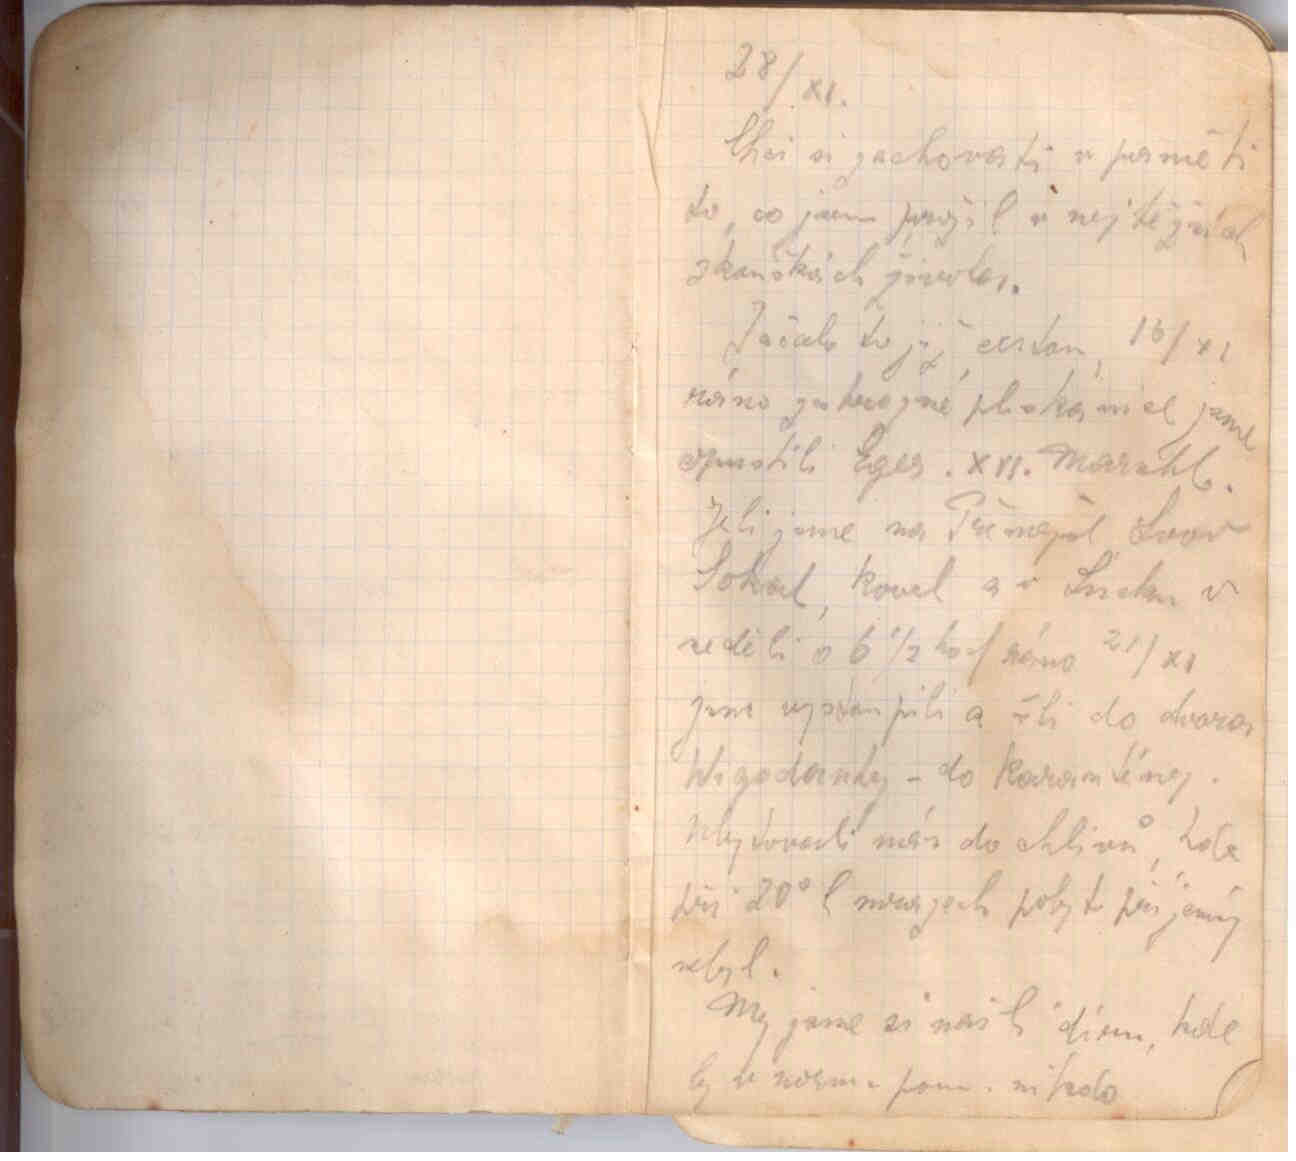 28/XI.
Chci si zachovati v paměti
to, co jsem prožil v nejtěžších
zkouškách života.
Začalo to již cestou, 16/XI
ráno jsme
opustili Eger. XVI. Marschb.
Jeli jsme na Přemyšl Lvov
Sokal, Kovel a v Lucku v
neděli o 6 1/2 hod ráno 21/XI
jsme vystoupili a šli do dvora
– do karantény.
Ubytovali nás do chlivů, kde
při 20° C mrazech pobyt příjemný
nebyl.
My jsme si našli díru, kde
by nikdo